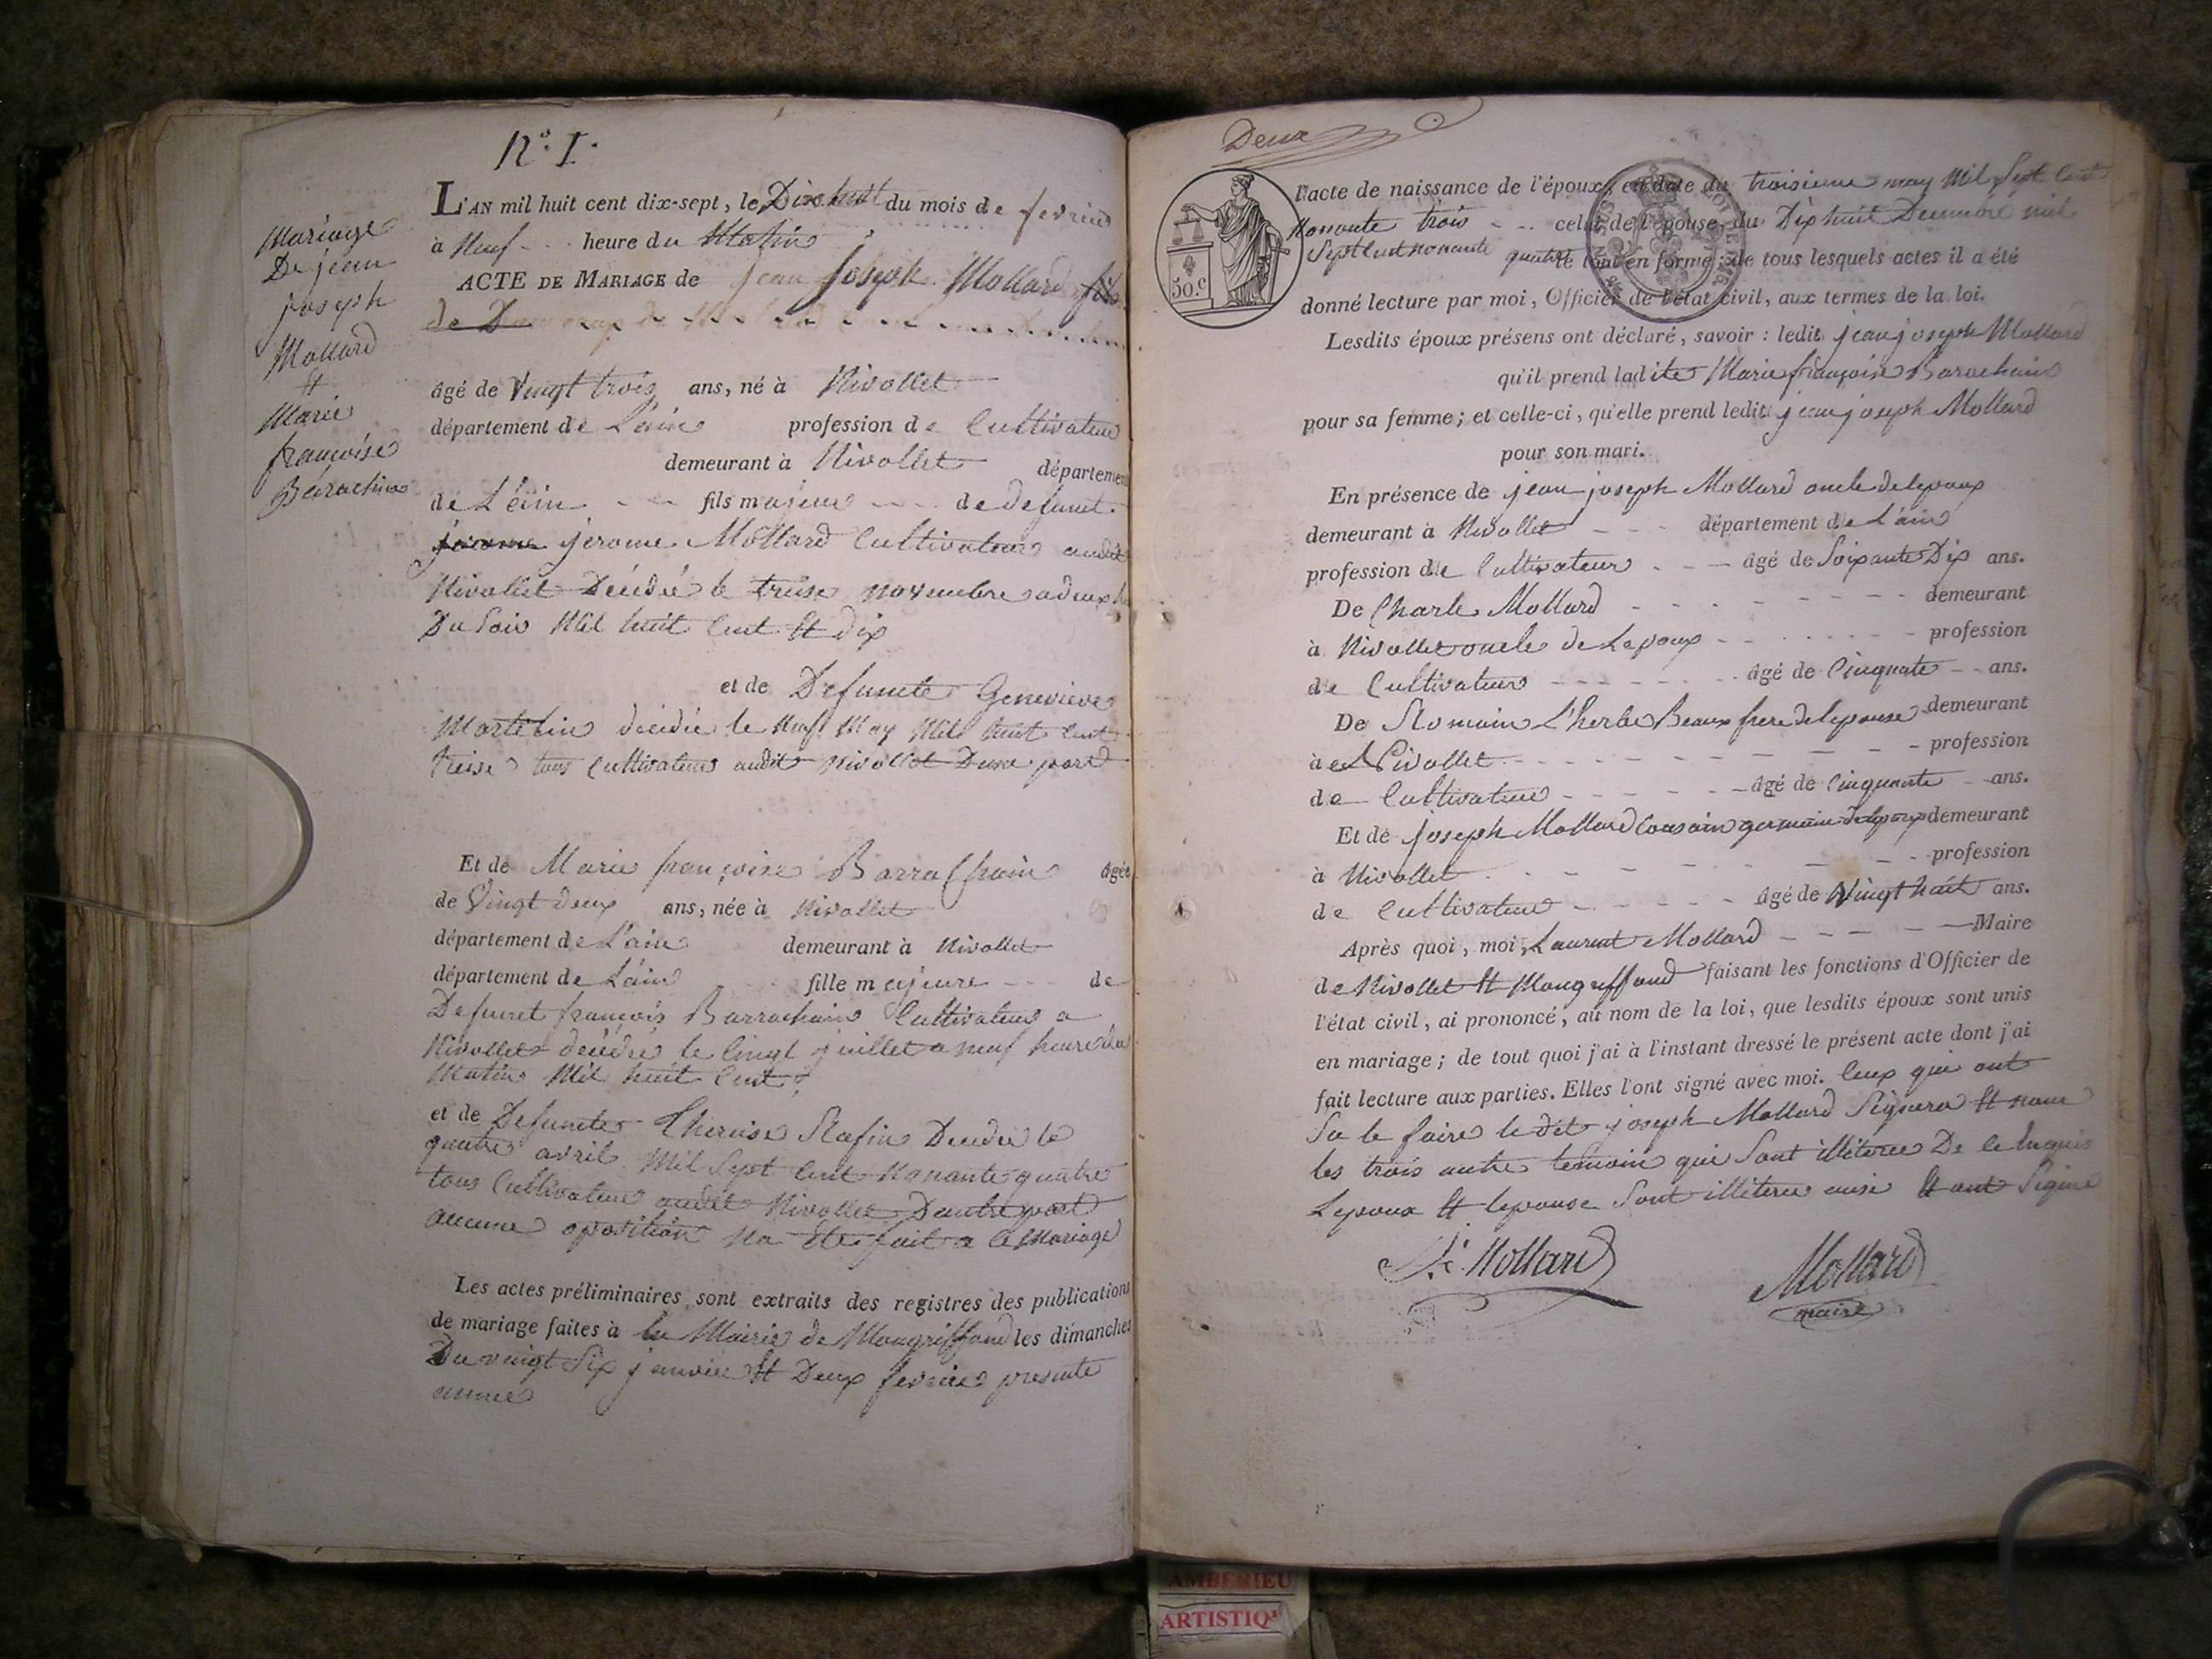 N° I.
Mariage
De jean
joseph
Mollard
Et
Marie
françoise
Barachin
L'AN mil huit cent dix-sept, le Dix huit du mois de fevrier
à Neuf heure du Matin
ACTE DE MARIAGE de jean joseph Mollard fils
de
âgé de Vingt trois ans, né à Nivollet
département de L'ain profession de Cultivateur
demeurant à Nivollet département
de L'ein fils majeur de defunt
jerome jerome Mollard Cultivateur audit
Nivollet Décédé le treise novembre a deux
Du Soir Mil huit Cent Et dix
et de Defunte Genevieve
Martelin décédée le neuf May Mil huit Cent
treise tous Cultivateur audit Nivollet Dune part
Et de Marie françoise Barrachain âgée
de Vingt deux ans, née à Nivollet
département de L'ain demeurant à Nivollet
département de L'ain fille majeure de
Defunt françois Barrachain Cultivateur a
Nivollet décédé le juillet a neuf heure du
Matin Mil huit Cent
et de Defunte Therese Décédée le
quatre avril Mil Sept Cent Nonante quatre
tous Cultivateur audit Nivollet Dautre part
aucune oposition Na Eté fait a ce Mariage
Les actes préliminaires sont extraits des registres des publications
de mariage faites à la Mairie de Mongriffond les dimanches
Du vingt Six janvier Et Deux fevrier presente
annee
Deux
50.c
l'acte de naissance de l'époux, en date du troisieme may Mil Sept Cent
Nonante trois celui de l'épouse, du Dix huit Decembre mil
Sept Cent nonante quatre le tout en forme; de tous lesquels actes il a été
donné lecture par moi, Officier de l'état civil, aux termes de la loi.
Lesdits époux présens ont déclaré, savoir : ledit jean joseph Mollard
qu'il prend ladite Marie françoise Barachain
pour sa femme; et celle-ci, qu'elle prend ledit jean joseph Mollard
pour son mari.
En présence de jean joseph Mollard oncle de lepoux
demeurant à Nivollet département de L'ain
profession de Cultivateur âgé de Soixante Dix ans.
De Charle Mollard demeurant
à Nivollet oncle de Lepoux profession
de Cultivateur âgé de Cinquante ans.
De Romain L'herbe Beaux frere de lepouse demeurant
à Nivollet profession
de Cultivateur âgé de Cinquante ans.
Et de joseph Mollard Cousin germain de lepoux demeurant
à Nivollet profession
de Cultivateur âgé de Vingt huit ans.
Après quoi, moi, Laurent Mollard Maire
de Nivollet Et Mongriffond faisant les fonctions d'Officier de
l'état civil, ai prononcé, au nom de la loi, que lesdits époux sont unis
en mariage; de tout quoi j'ai à l'instant dressé le présent acte dont j'ai
fait lecture aux parties. Elles l'ont signé avec moi. Ceux qui ont
Su le faire ledit joseph Mollard Signera Et non
les trois autre temoin qui Sont illiteree De ce Enquis
Lepoux Et lepouse Sont illiteree ausi Et ont Signe
Mollard
Mollard
maire
AMBERIEU
ARTISTIQ